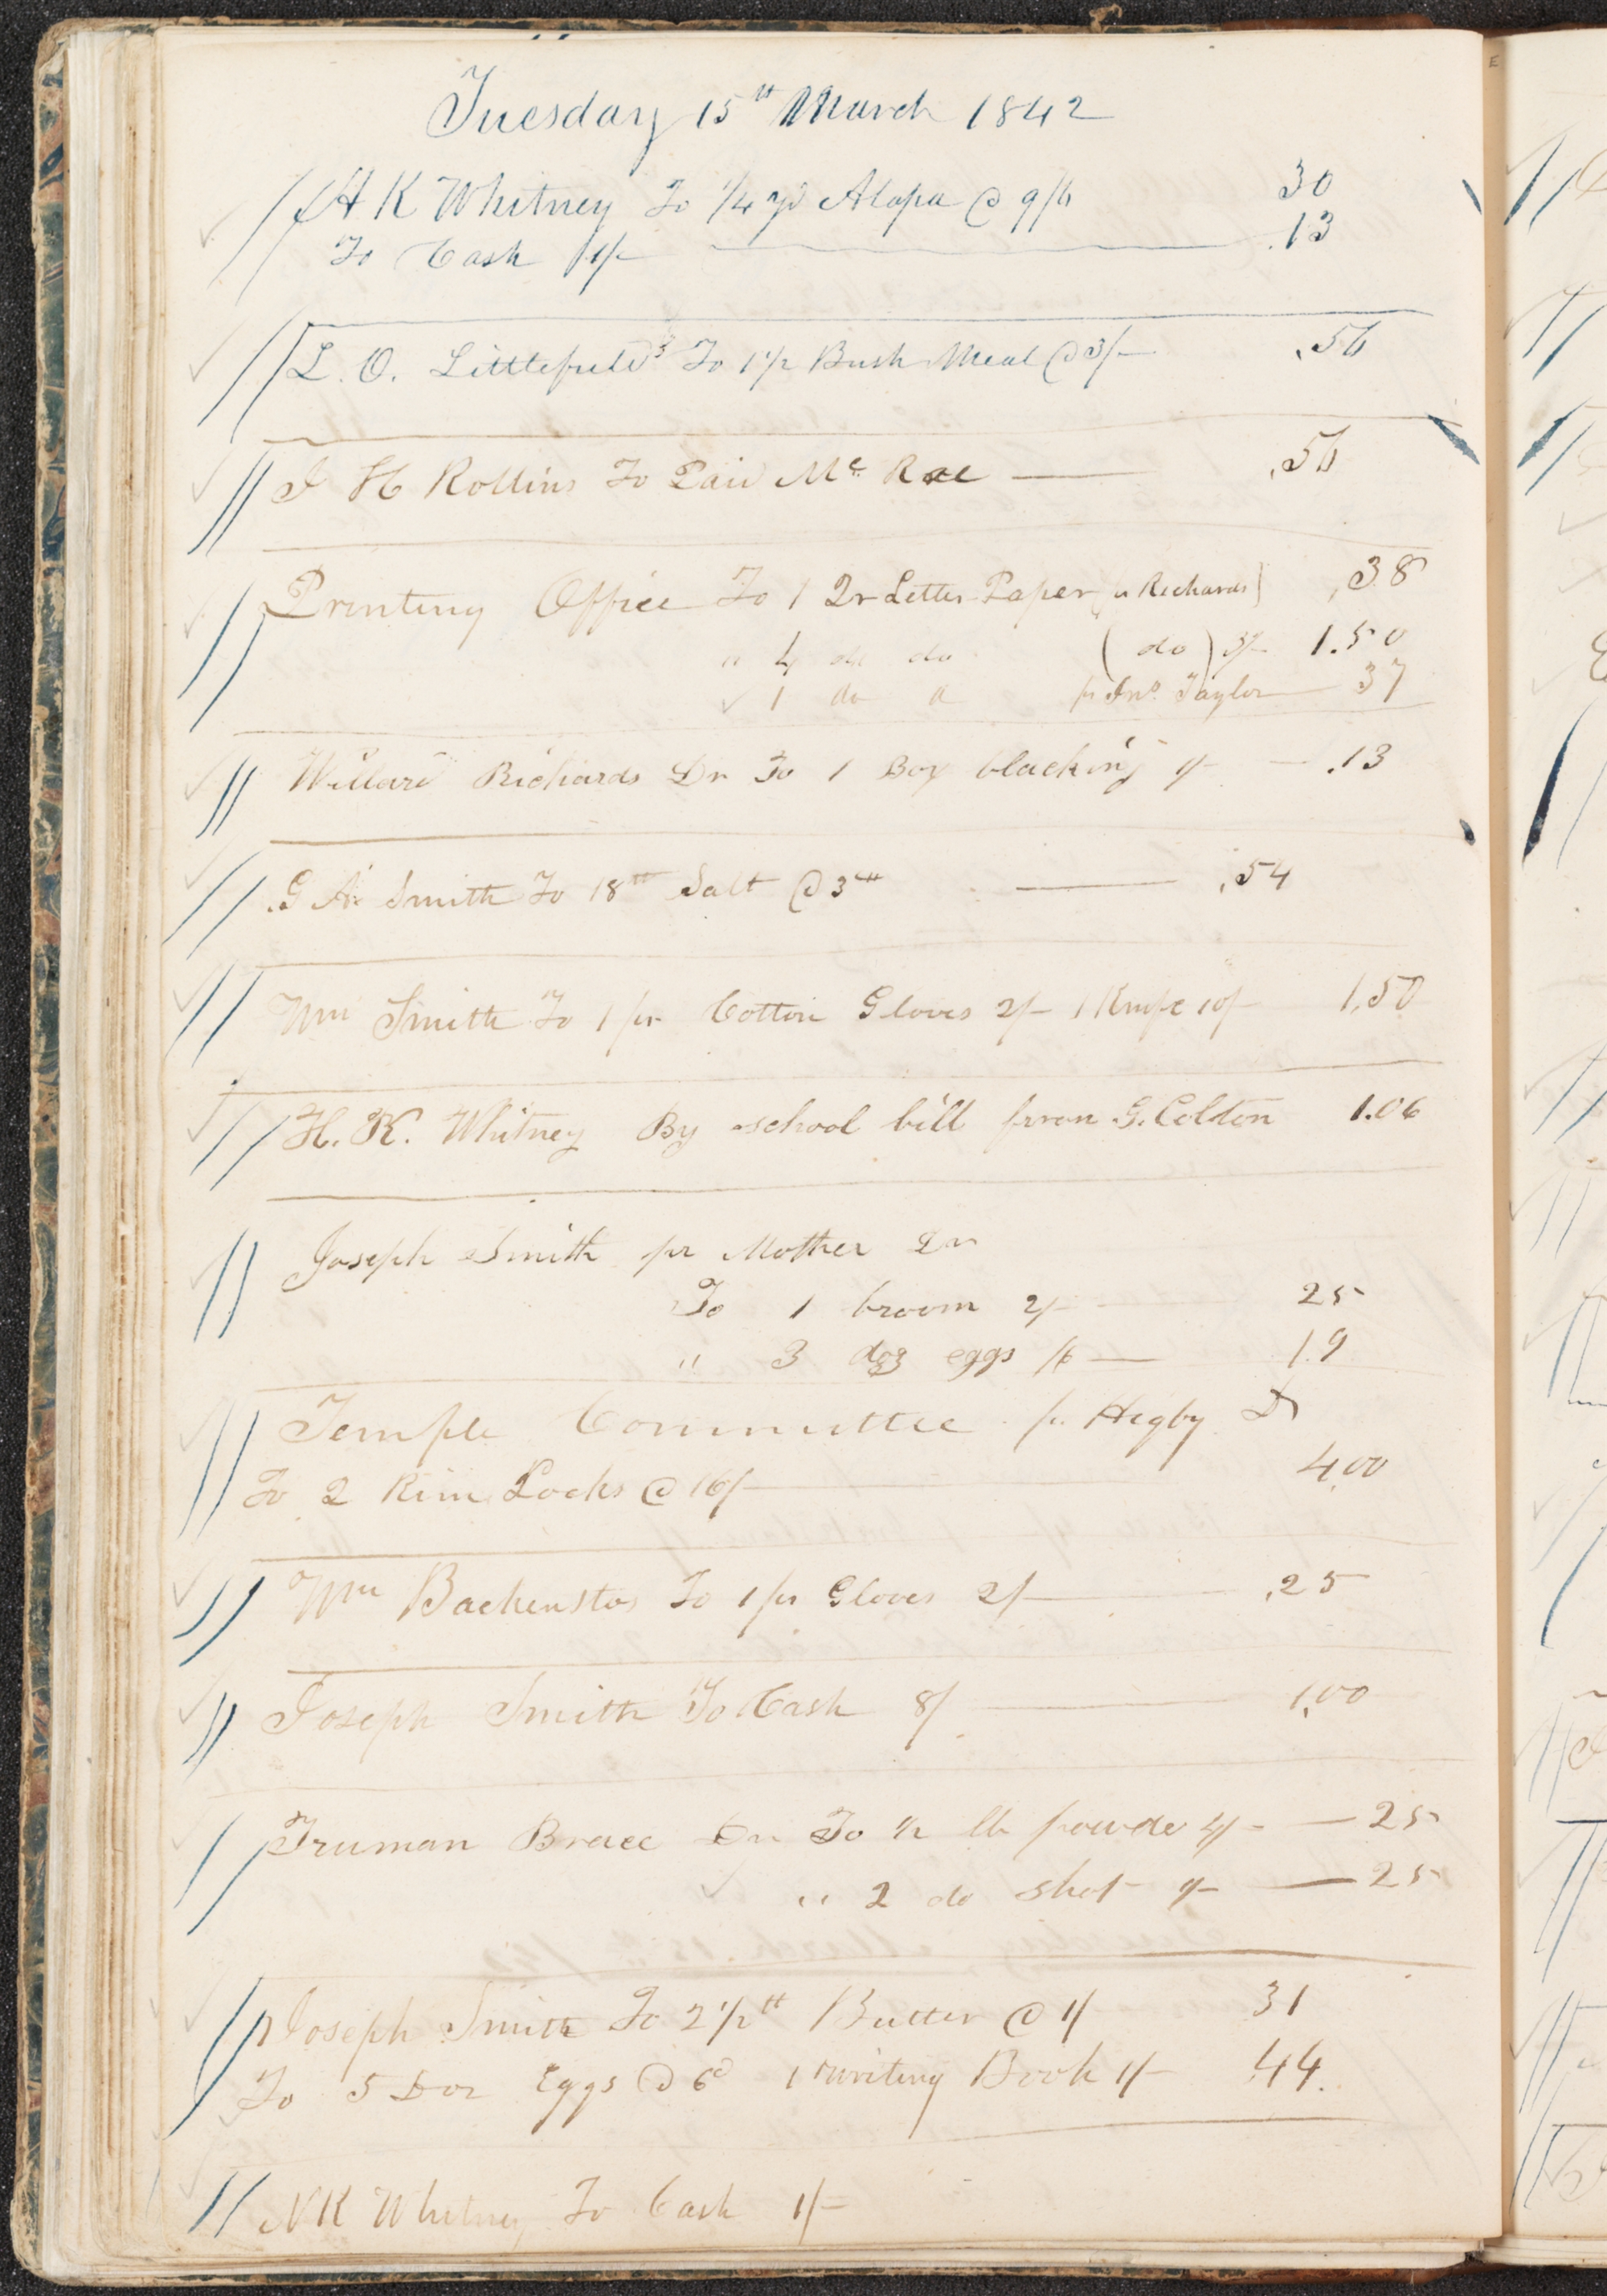 Tuesday 15th March 1842
H K Whitney To 1/4 yd Alapa @ 9/6 30
To Cash 1/- .13
L. O. Littlefield To 1 1/2 Bush Meal @ 3/- .56
J H Rollins To Paid Mc Rae .56
Printing Office To 1 Qr Letter Paper pr Richards .38
" 4 do do (do) 3/- 1.50
1 do pr Jno. Taylor 37
Willard Richards Dr To 1 Box blacking 1/- .13
G A Smith To 18 tt Salt @ 3 .54
Wm Smith To 1 pr Cotton Gloves 2/- 1 Knife 10/- 1.50
H. K. Whitney By school bill from G. Colton 1.06
Joseph Smith pr Mother Dr
To 1 broom 2/- 25
" 3 doz eggs /6 19
Temple Committee pr Higby Dr
To 2 Rim Locks @ 16/- 4.00
Wm Backenstos To 1 pr Gloves 2/- .25
Joseph Smith To Cash 8/ 1.00
Truman Brace Dr To 1/2 lb powder 4/- 25
" 2 do shot 1/- 25
Joseph Smith To 2 1/2 tt Butter @ 1/ 31
To 5 Doz Eggs @ 6d 1 writing Book 1/- 44
N K Whitney To Cash 1/-